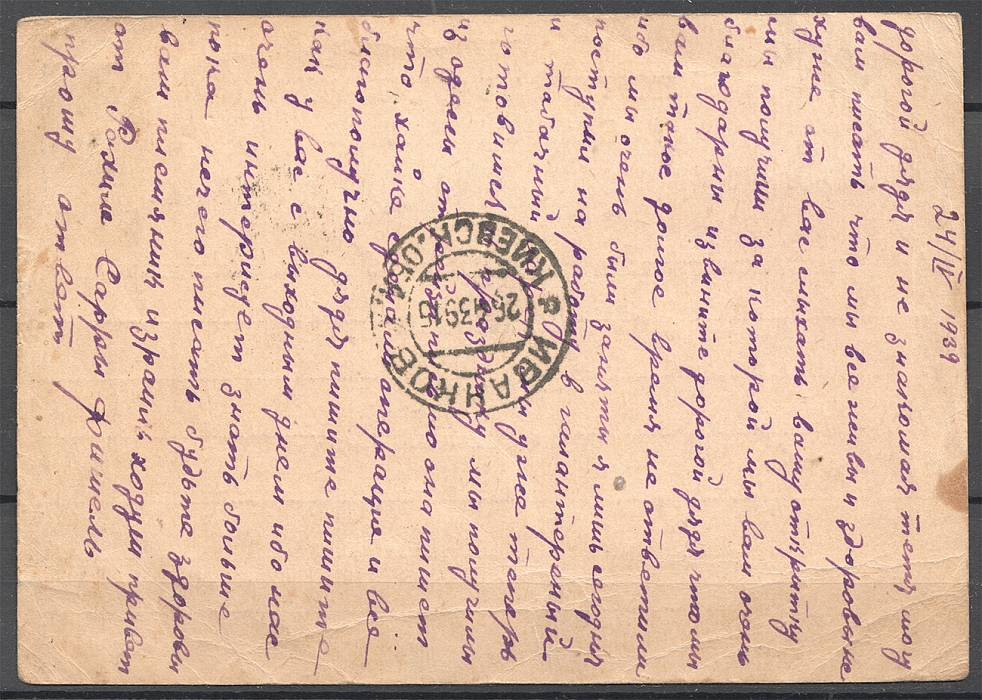 24/IV 1939
дорогой дядя и не знакомая тетя могу
вам писать что мы все живы и здоровы не
хуже от вас слыхать вашу открытку
мы получили за которой мы вам очень
благодарны извините дорогой дядя что мы
вам такое долгое время не ответили
ибо мы очень были заняты я лишь сегодня
поступил на работу в галантерейный
и табачный
готовимся к празднику мы уже теперь
из одесы мы получили
что ханке сделали операцию и все
благополучно дядя пишите пишите
как у вас с выходным днем ибо нас
очень интересует знать больше
пока нечего писать будьте здоровы
ваш племянник израиль ходум привет
от Рахиле Сарры фишель
прошу ответ
ИВАНКОВ КИЕВСК. ОБЛ.
26 4 39 15